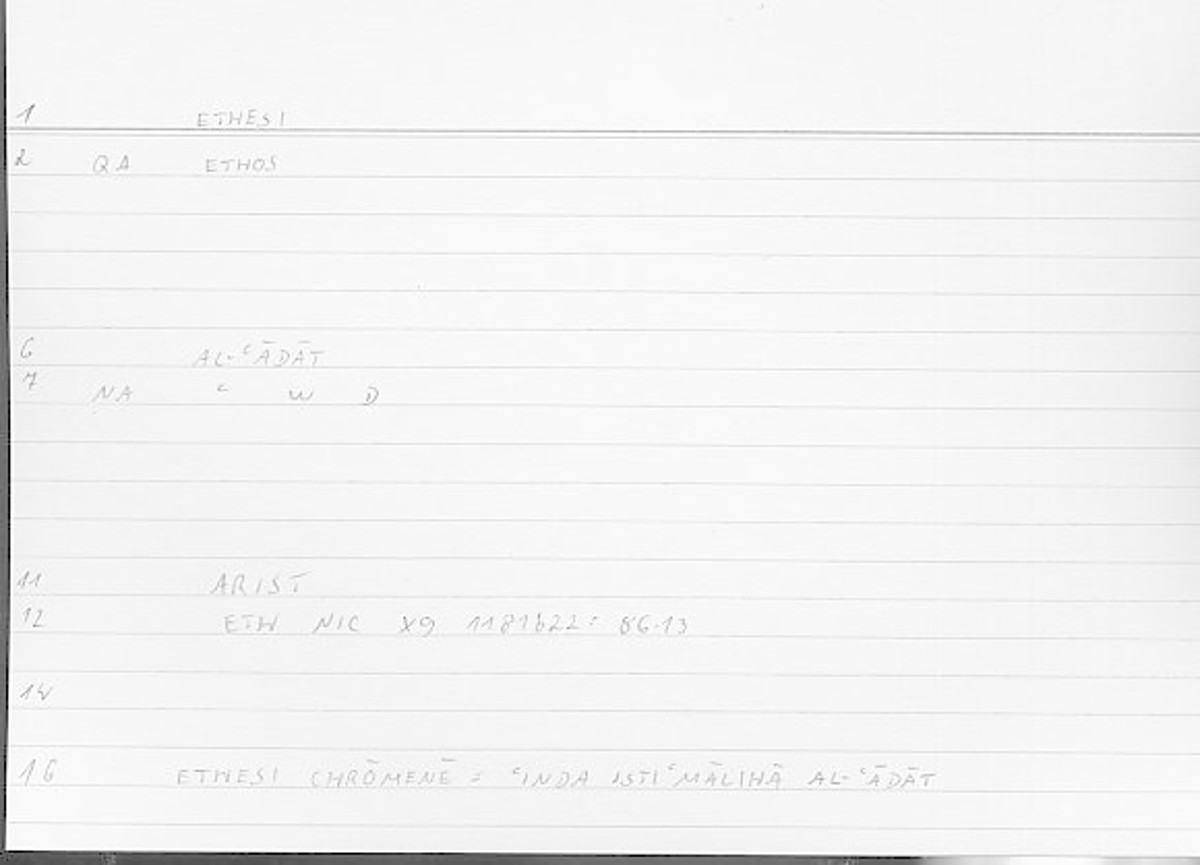 1 ETHESI
2 QA ETHOS
6 AL-ʿĀDĀT
7 NA ʿ W D
11 ARIST
12 ETH NIC X9 1181b22: 56.13
14
16 ETHESI CHRŌMENĒ = ʿINDA ISTIʿMĀLIHĀ AL-ʿĀDĀT